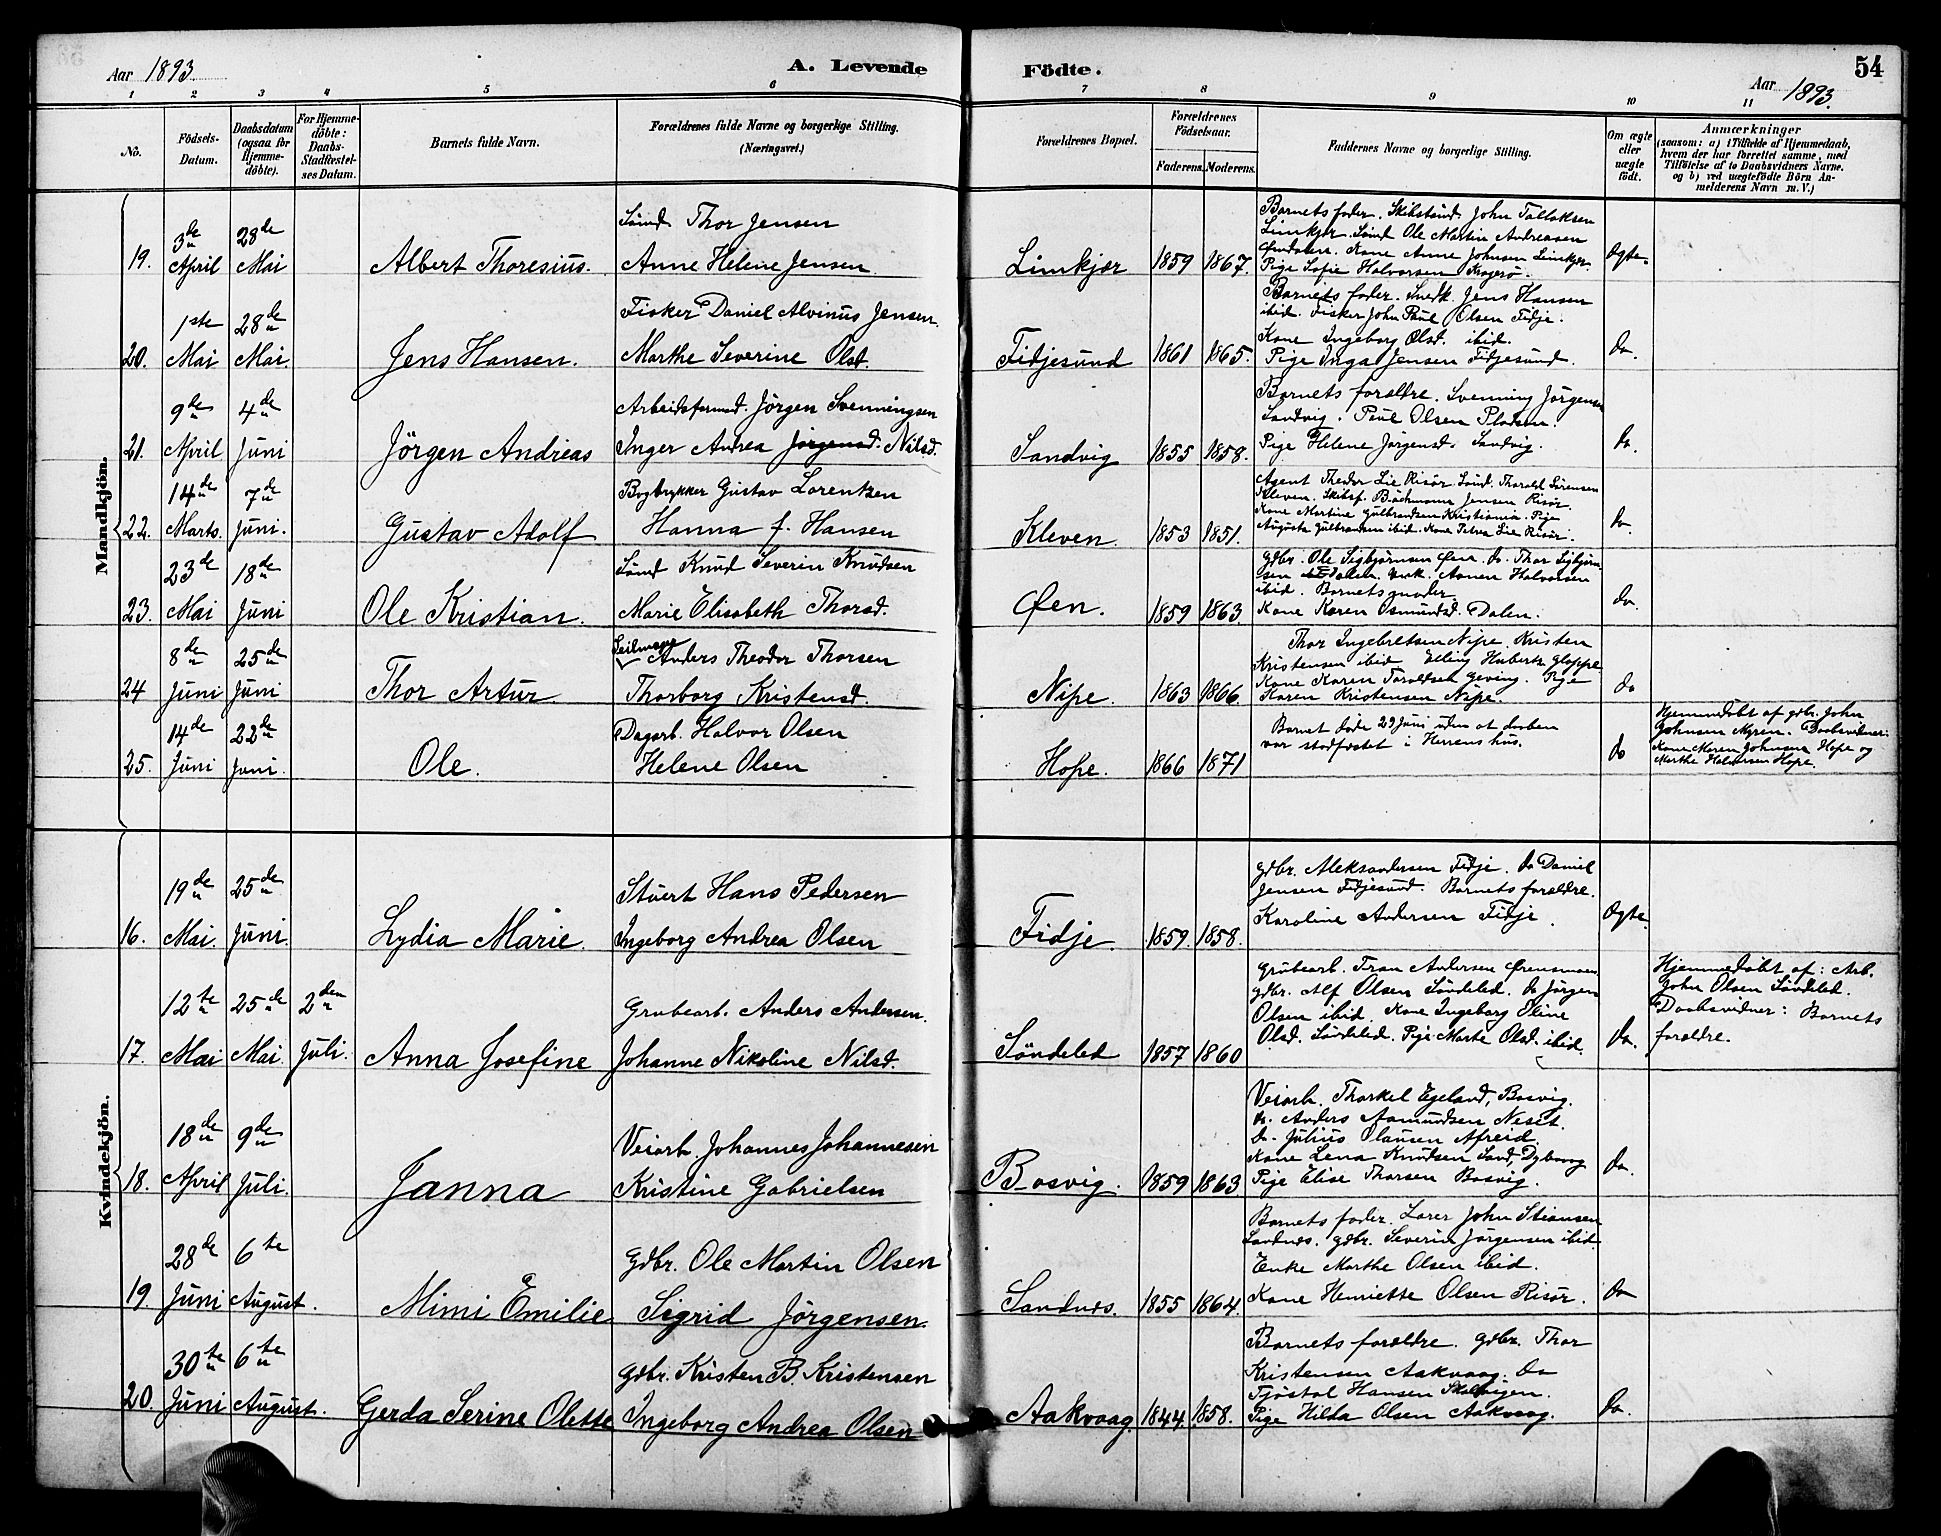 Aar 1893.
A. Levende Födte.
Aar 1893.
54
1 2 3 4 5 6 7 8 9 10 11
No.
Födsels-Datum.
Daabsdatum (ogsaa for Hjemmedöbte).
For Hjemmedöbte: Daabs-Stadfæstelses Datum.
Barnets fulde Navn.
Forældrenes fulde Navne og borgerlige Stilling. (Næringsvei.)
Forældrenes Bopæl.
Forældrenes Födselsaar.
Faderens. Moderens.
Faddernes Navne og borgerlige Stilling.
Om ægte eller uægte födt.
Anmærkninger
(saasom: a) i Tilfælde af Hjemmedaab, hvem der har forrettet samme, med Tilföielse af to Daabsvidners Navne, og b) ved uægtefödte Börn Anmelderens Navn m. V.)
Mandkjön.
19. 3de April 28de Mai
Albert Thoresius.
Sönd Thor Jensen
Anne Helene Jensen
Limkjær 1859 1867.
Barnets fader. Skibstönd. John Tallaksen
Limkjær. Sönd Ole Martin Andreasen
Kone Anne Johnsen Limkjær.
Pige Sofie Halvorsen Kragerö.
Ægte.
20. 1ste Mai 28de Mai.
Jens Hansen.
Fisker Daniel Alvinus Jensen.
Marthe Severine Olsd.
Fidjesund 1861 1865.
Barnets fader. Snedk. Jens Hansen
ibid. Fisker John Paul Olsen Fidje.
Kone Ingeborg Olsd. ibid.
Pige Inga Jensen Fidjesund.
do.
21. 9de April 4de Juni
Jörgen Andreas
Arbeidsformd. Jörgen Svenningsen
Inger Andrea Jörgensd. Nilsd.
Sandvig 1855 1858.
Barnets forældre. Svenning Jörgensen
Sandvig. Paul Olsen
Pige Helene Jörgensd. Sandvig.
do.
22. 14de Marts. 7de Juni.
Gustav Adolf
Bogtrykker Gustav Lorentzen
Hanna f. Hansen
Kleven. 1853 1851.
Agent Theodor Lie Risör. Sönd. Thorald Sörensen
Kleven. Skibsf. Bachmann Jensen Risör.
Kone Martine Gulbrandsen Kristiania. Pige
Augusta Gulbrandsen ibid. Kone Petra Lie Risör.
do.
23. 23de Mai 18de Juni
Ole Kristian.
Sönd Knud Severin Knudsen
Marie Elisabeth Thorsd.
Øen. 1859 1863.
gdbr. Ole Sigbjörnsen Øen do. Thor Sigbjörn-
sen Dalen. Halvorsen
ibid. Barnets moder
Kone Karen Osmundsd. Dalen.
do.
24 8de Juni 25de Juni
Thor Artur.
Seilmager Anders Theodor Thorsen
Thorborg Kristensd.
Nipe. 1863 1866.
Thor Ingebretsen Nipe. Kristen
Kristensen ibid Elling Hubertz Gloppe
Kone Karen Taraldsen Geving. Pige
Karen Kristensen Nipe.
do
25. 14de Juni 22de Juni.
Ole.
Dagarb. Halvor Olsen
Helene Olsen
Hope. 1866 1871
Barnet döde 29 Juni uden at daaben
var stadfæstet i Herrens hus.
do
Hjemmedöbt af gdbr. John
Johnsen Myren. Daabsvidner:
Kone Maren Johnsen Hope og
Marthe Halvorsen Hope.
Kvindekjön.
16. 19de Mai. 25de Juni.
Lydia Marie.
Stuert Hans Pedersen
Ingeborg Andrea Olsen
Fidje. 1859. 1858.
gdbr. Aleksandersen Fidje. do Daniel
Jensen Fidjesund. Barnets forældre.
Karoline Andersen Fidje.
Ægte.
17. 12te Mai 25de Mai 2den Juli.
Anna Josefine
Grubearb. Anders Andersen.
Johanne Nikoline Nilsd.
Söndeled 1857 1860
Grubearb. Andersen
gdbr. Alf Olsen Söndeled. do Jörgen
Olsen ibid. Kone Ingeborg Oline
Olsd. Söndeled. Pige Marte Olsd. ibid.
do.
Hjemmedöbt af: Arb.
John Olsen Söndeled.
Daabsvidner: Barnets
forældre.
18. 18de April 9de Juli.
Janna
Veiarb. Johannes Johannesen
Kristine Gabrielsen
Bosvig. 1859 1863
Veiarb. Thorkel Egeland, Bosvig.
do. Anders Aamundsen Neset.
do. Julius Olausen Afreid.
Kone Lena Knudsen Sand, Dybvaag
Pige Elise Thorsen Bosvig.
do.
19. 28de Juni 6te August.
Mimi Emilie
gdbr. Ole Martin Olsen
Sigrid Jörgensen
Sandnes. 1855 1864.
Barnets fader. Lærer John Stiansen
Sandnes. gdbr. Severin Jörgensen ibid.
Enke Marthe Olsen ibid.
Kone Henriette Olsen Risör.
do
20. 30te Juni 6te August.
Gerda Serine Olette
gdbr. Kristen B. Kristensen
Ingeborg Andrea Olsen
Aakvaag. 1844. 1858.
Barnets forældre. gdbr. Thor
Kristensen Aakvaag. do
Tjöstol Hansen
Pige Hilda Olsen Aakvaag.
do.